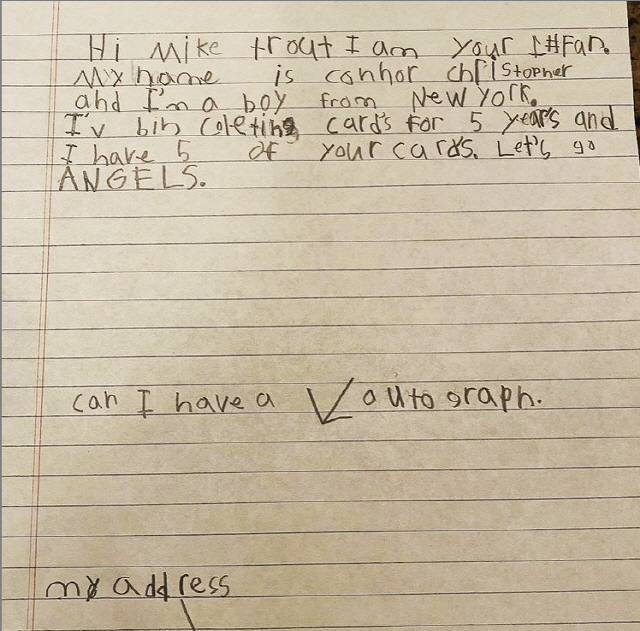 Hi Mike trout I am your 1#Fan.
My name is conhor christopher
and I'm a boy from New York.
I'v bin coleting card's for 5 year's and
I have 5 of your card's. Let's go
ANGELS.
can I have a autograph.
my address